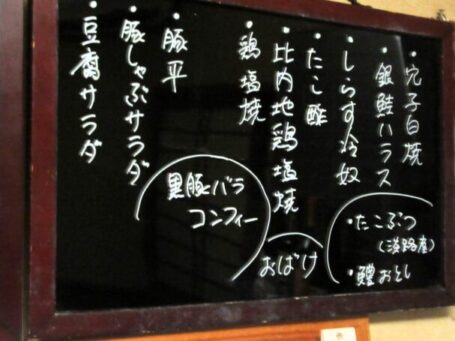 ・穴子白焼
・銀鮭ハラス
・しらす冷奴
・たこ酢
・比内地鶏塩焼
鶏塩焼
・豚平
・豚しゃぶサラダ
・豆腐サラダ
・たこぶつ
(淡路産)
・鱧おとし
おばけ
黒豚バラ
コンフィー